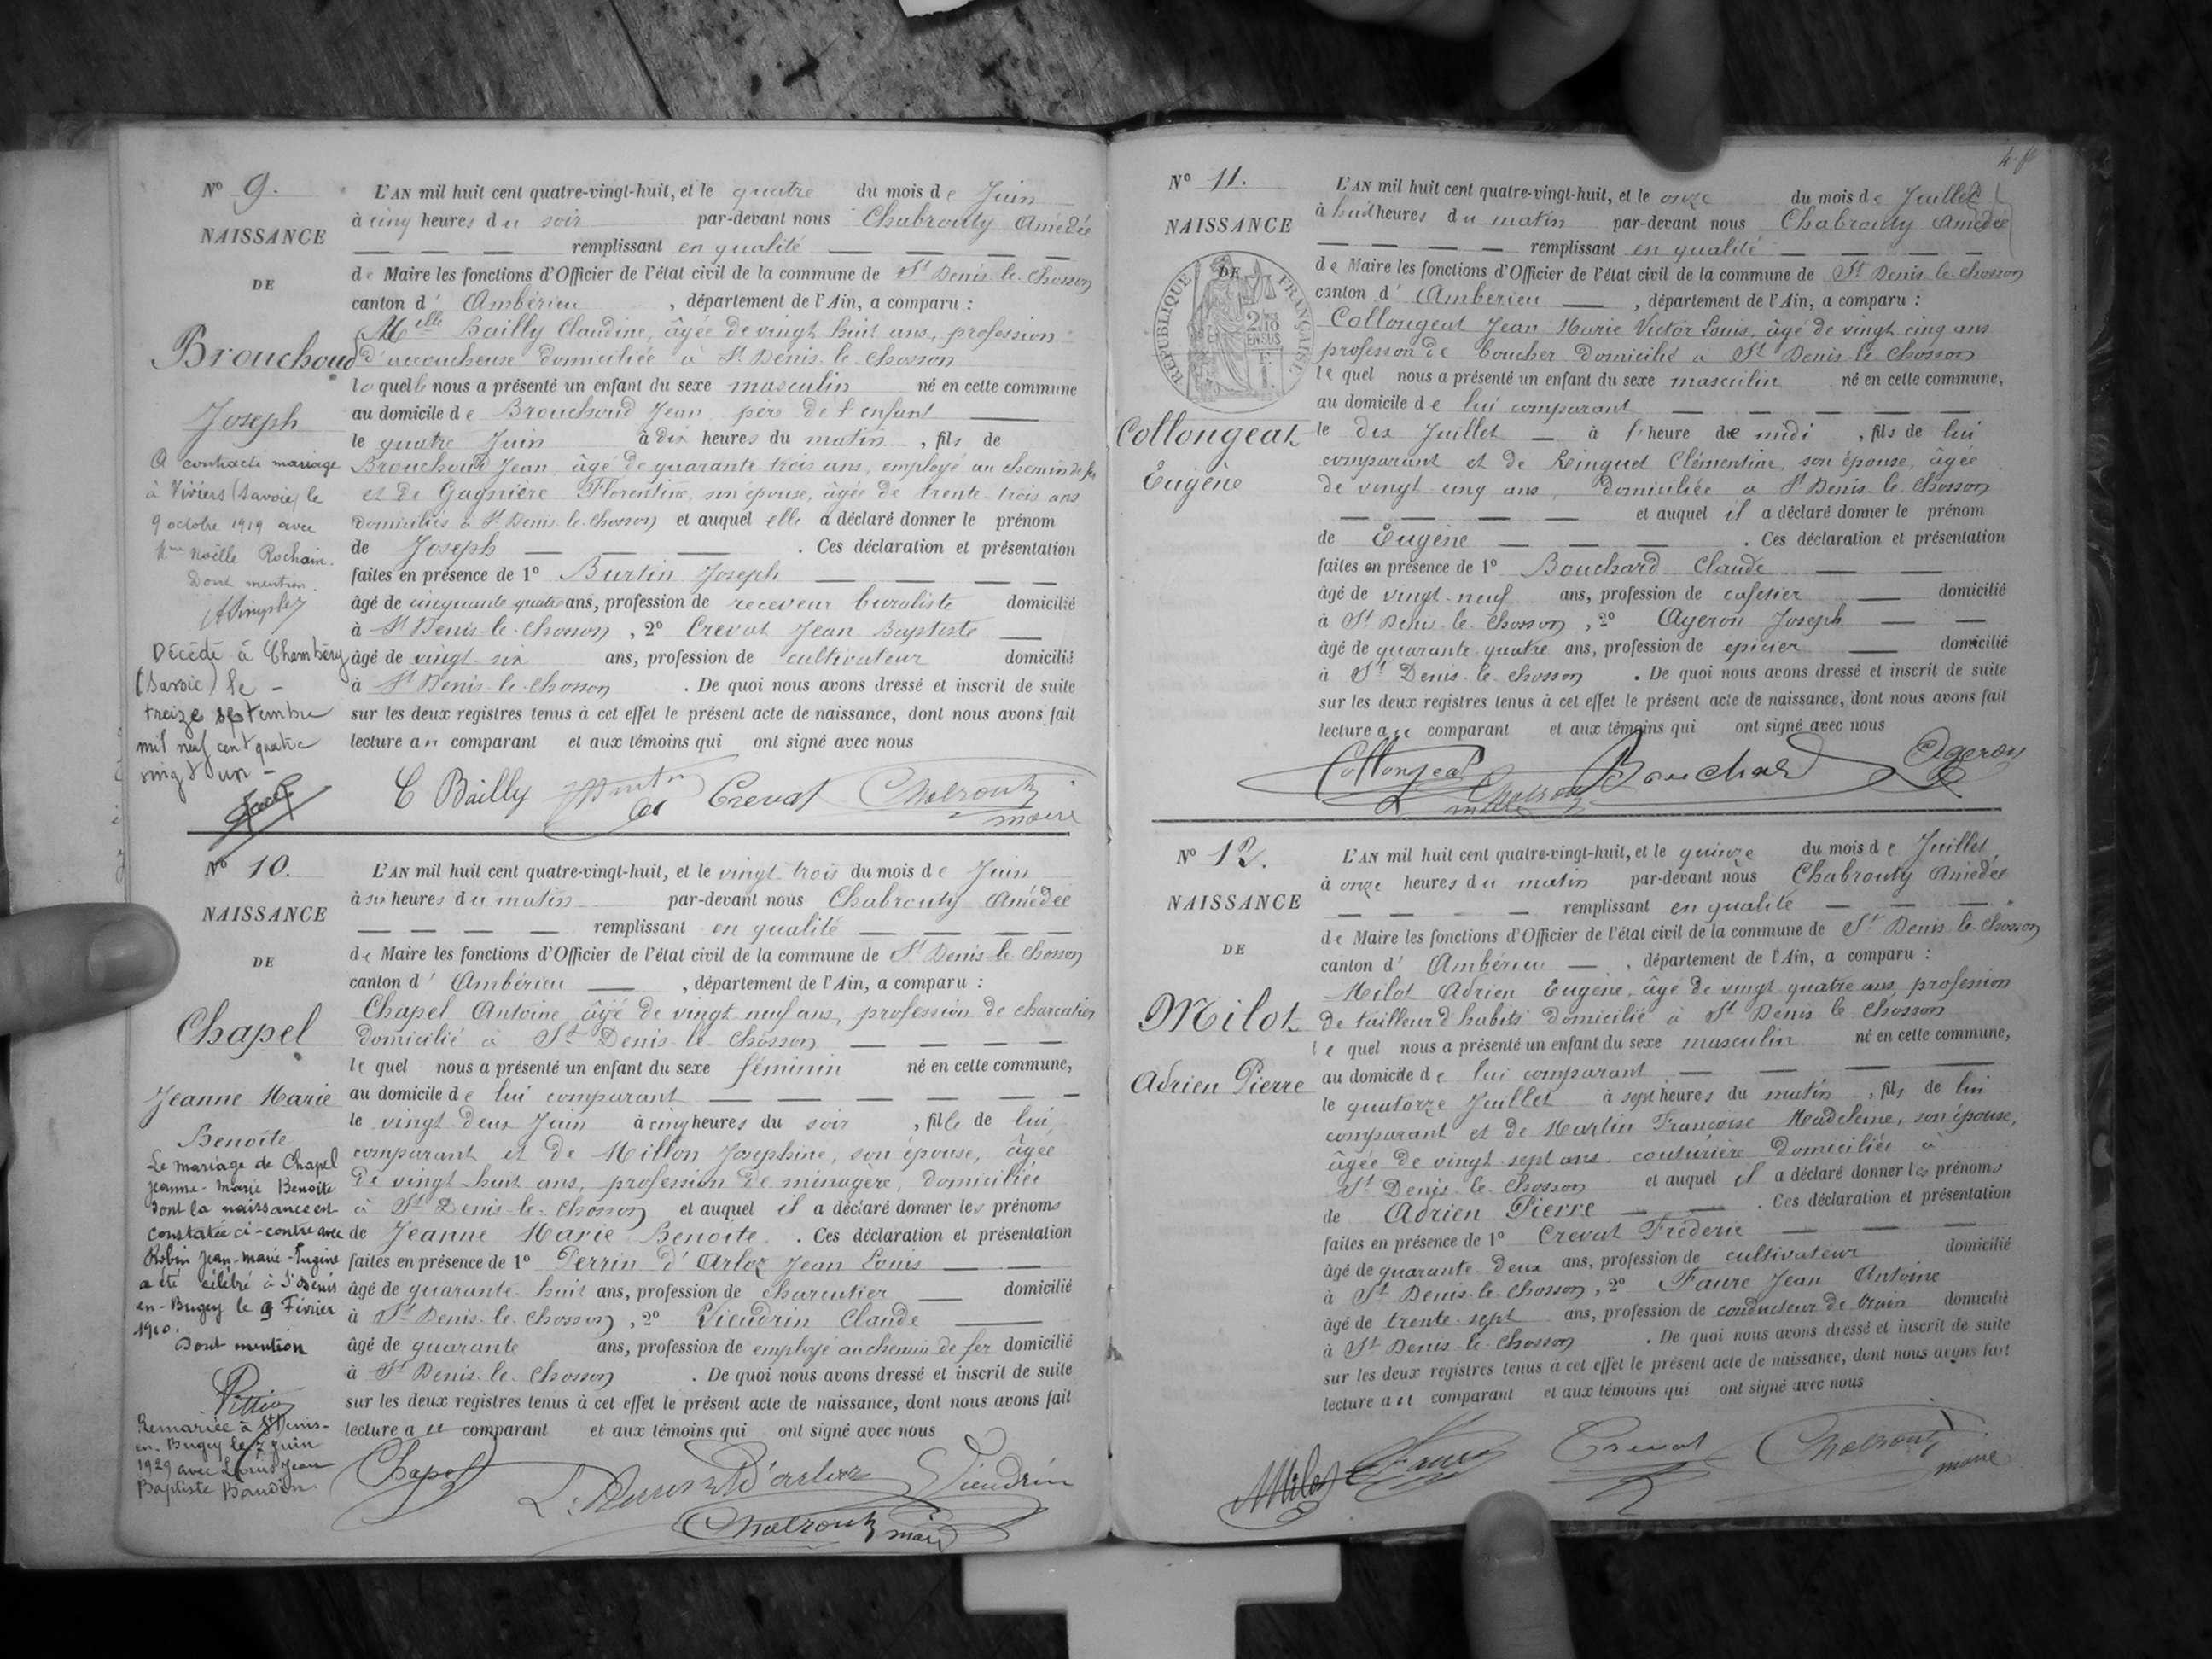 N° 9.
NAISSANCE
DE
Brouchoud
Joseph
A contracté mariage
à Viviers (Savoie) le
9 octobre 1919 avec
Noëlle Rochaix.
Dont mention
Décédé à Chambéry
(Savoie) le -
treize septembre
mil neuf cent quatre
vingt un -
L'AN mil huit cent quatre-vingt-huit, et le quatre du mois de Juin
à cinq heures du soir par-devant nous Chabrouty Amédée
remplissant en qualité
de Maire les fonctions d'Officier de l'état civil de la commune de St Denis-le-Chosson
canton d' Ambérieu , département de l'Ain, a comparu :
Melle Bailly Claudine, âgée de vingt huit ans, profession
d'accoucheuse domiciliée à St Denis-le-Chosson
laquelle nous a présenté un enfant du sexe masculin né en cette commune
au domicile de Brouchoud Jean père de l'enfant
le quatre Juin à dix heures du matin , fils de
Brouchoud Jean âgé de quarante trois ans, employé au chemin de fer
et de Gagnière Florentine, son épouse, âgée de trente-trois ans
domiciliés à St Denis-le-Chosson et auquel elle a déclaré donner le prénom
de Joseph . Ces déclaration et présentation
faites en présence de 1° Burtin Joseph
âgé de cinquante quatre ans, profession de receveur buraliste domicilié
à St Denis-le-Chosson , 2° Crevat Jean Baptiste
âgé de vingt-six ans, profession de cultivateur domicilié
à St Denis-le-Chosson . De quoi nous avons dressé et inscrit de suite
sur les deux registres tenus à cet effet le présent acte de naissance, dont nous avons fait
lecture au comparant et aux témoins qui ont signé avec nous
C Bailly Burtin Crevat Chabrouty
maire
N° 10.
NAISSANCE
DE
Chapel
Jeanne Marie
Benoite
Le mariage de Chapel
Jeanne-Marie Benoite
dont la naissance est
constatée ci-contre avec
Robin Jean-Marie-Eugène
a été célébré à St Denis
en-Bugey le 9 Février
1910.
Dont mention
Remariée à St Denis-
en-Bugey le 7 juin
1929 avec Louis Jean
Baptiste Baudin.
L'AN mil huit cent quatre-vingt-huit, et le vingt-trois du mois de Juin
à six heures du matin par-devant nous Chabrouty Amédée
remplissant en qualité
de Maire les fonctions d'Officier de l'état civil de la commune de St Denis-le-Chosson
canton d' Ambérieu , département de l'Ain, a comparu :
Chapel Antoine âgé de vingt neuf ans, profession de charcutier
domicilié à St Denis-le-Chosson
lequel nous a présenté un enfant du sexe féminin né en cette commune,
au domicile de lui comparant
le vingt-deux Juin à cinq heures du soir , fille de lui,
comparant et de Millon Josephine, son épouse, âgée
de vingt-huit ans, profession de ménagère, domiciliée
à St Denis-le-Chosson et auquel il a déclaré donner les prénoms
de Jeanne Marie Benoite . Ces déclaration et présentation
faites en présence de 1° Perrin d'Arloz Jean Louis
âgé de quarante-huit ans, profession de charcutier domicilié
à St Denis-le-Chosson , 2° Vieudrin Claude
âgé de quarante ans, profession de employé au chemin de fer domicilié
à St Denis-le-Chosson . De quoi nous avons dressé et inscrit de suite
sur les deux registres tenus à cet effet le présent acte de naissance, dont nous avons fait
lecture au comparant et aux témoins qui ont signé avec nous
Chapel L. Perrin d'arloz Vieudrin
Chabrouty maire
N° 11.
NAISSANCE
DE
RÉPUBLIQUE FRANÇAISE
2/10 EN SUS
Collongeat
Eugène
L'AN mil huit cent quatre-vingt-huit, et le onze du mois de Juillet
à huit heures du matin par-devant nous Chabrouty Amédée
remplissant en qualité
de Maire les fonctions d'Officier de l'état civil de la commune de St Denis-le-Chosson
canton d' Ambérieu , département de l'Ain, a comparu :
Collongeat Jean Marie Victor Louis, âgé de vingt cinq ans
profession de boucher domicilié à St Denis-le-Chosson
lequel nous a présenté un enfant du sexe masculin né en cette commune,
au domicile de lui comparant
le dix Juillet à l'heure de midi , fils de lui
comparant et de Reinguet Clémentine, son épouse, âgée
de vingt cinq ans, domiciliée à St Denis-le-Chosson
et auquel il a déclaré donner le prénom
de Eugène . Ces déclaration et présentation
faites en présence de 1° Bouchard Claude
âgé de vingt-neuf ans, profession de cafetier domicilié
à St Denis-le-Chosson , 2° Ageron Joseph
âgé de quarante-quatre ans, profession de épicier domicilié
à St Denis-le-Chosson . De quoi nous avons dressé et inscrit de suite
sur les deux registres tenus à cet effet le présent acte de naissance, dont nous avons fait
lecture au comparant et aux témoins qui ont signé avec nous
Collongeat Bouchard Ageron
Chabrouty
maire
N° 12.
NAISSANCE
DE
Milot
Adrien Pierre
L'AN mil huit cent quatre-vingt-huit, et le quinze du mois de Juillet
à onze heures du matin par-devant nous Chabrouty Amédée
remplissant en qualité
de Maire les fonctions d'Officier de l'état civil de la commune de St Denis-le-Chosson
canton d' Ambérieu , département de l'Ain, a comparu :
Milot Adrien Eugène, âgé de vingt quatre ans, profession
de tailleur d'habits domicilié à St Denis-le-Chosson
lequel nous a présenté un enfant du sexe masculin né en cette commune,
au domicile de lui comparant
le quatorze Juillet à sept heures du matin , fils de lui
comparant et de Martin Françoise Madeleine, son épouse,
âgée de vingt-sept ans, couturière domiciliée à
St Denis-le-Chosson et auquel il a déclaré donner les prénoms
de Adrien Pierre . Ces déclaration et présentation
faites en présence de 1° Crevat Fréderic
âgé de quarante-deux ans, profession de cultivateur domicilié
à St Denis-le-Chosson , 2° Faure Jean Antoine
âgé de trente-sept ans, profession de conducteur de train domicilié
à St Denis-le-Chosson . De quoi nous avons dressé et inscrit de suite
sur les deux registres tenus à cet effet le présent acte de naissance, dont nous avons fait
lecture au comparant et aux témoins qui ont signé avec nous
Milot Faure Crevat Chabrouty
maire